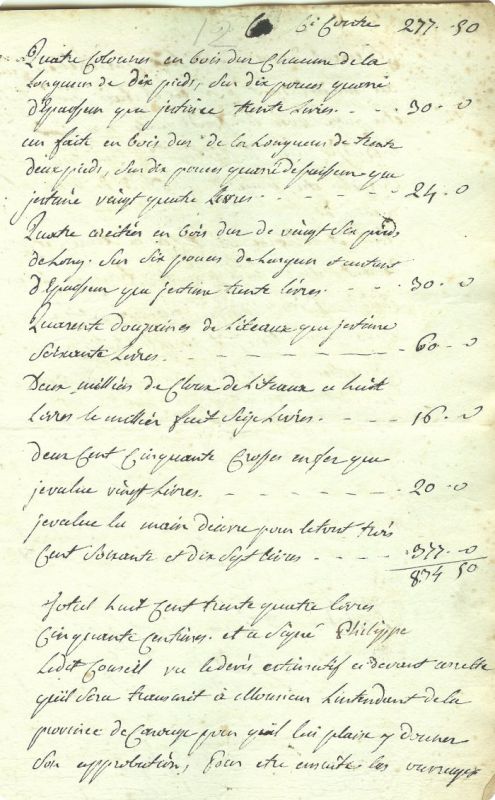 Ci Contre 277 - 50
Quatre Colonnes en bois dur Chacune de la
Longueur de dix pieds, sur dix pouces quarré
d'Epaisseur que j'estime trente livres - - 30 - 0
un faite en bois dur de la Longueur de trente
deux pieds, sur dix pouces quarré d'epaisseur que
j'estime vaingt quatre Livres - - - - 24 - 0
Quatre arêtiés en bois dur de vaingt six pieds
de Long, sur six pouces de Largeur et autant
d'Epaisseur que j'estime trente livres - - 30 - 0
Quarente douzaines de Liteaux que j'estime
soixante Livres - - - - - 60 - 0
Deux milliés de Cloux de Liteaux a huit
Livres le millier fait seize Livres - - - 16 - 0
deux Cent Cinquante Crosses en fer que
j'evalue vingt Livres - - - - - 20 - 0
j'evalue la main d'euvre pour le tout trois
Cent soixante et dix sept livres - - - 377 - 0
834 50
total huit Cent trente quatre livres
Cinquante Centimes. et a signé Philippe
Ledit Conseil vu le devis estimatif ci devant arrette
qu'il sera transmit à Monsieur L'intendant de la
province de Carouge pour qu'il lui plaise y donner
son approbation, pour etre ensuite les ouvrages